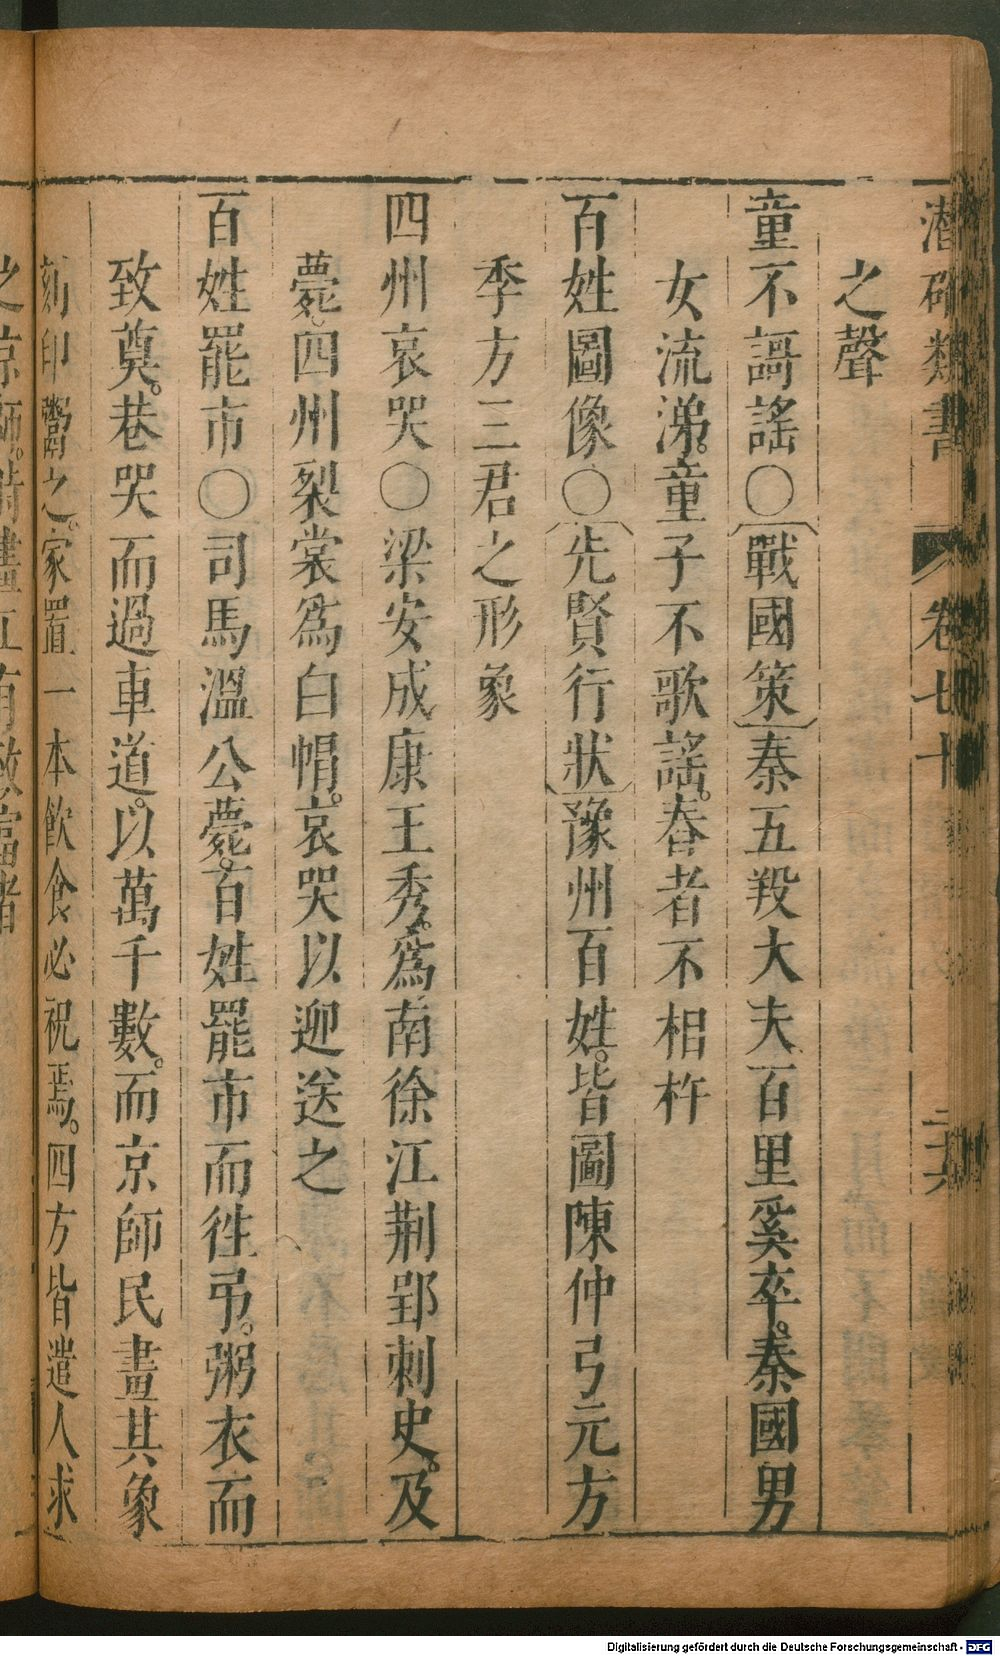 潛確類書 卷七十 二六
之聲
童不謌謠〇〔戰國策〕秦五羖大夫百里奚卒。秦國男
女流涕。童子不歌謠。舂者不相杵
百姓圖像〇〔先賢行狀〕豫州百姓。皆圖陳仲弓元方
季方三君之形象
四州哀哭〇梁安成康王秀。爲南徐江荆郢刺史。及
薨。四州裂裳爲白帽。哀哭以迎送之
百姓罷市〇司馬溫公薨。百姓罷市而徃弔。粥衣而
致奠。巷哭而過車道。以萬千數。而京師民畫其象
刻印鬻之。家置一本飲食必祝焉。四方皆遣人求
之京師。時畫工有致富者
Digitalisierung gefördert durch die Deutsche Forschungsgemeinschaft - DFG